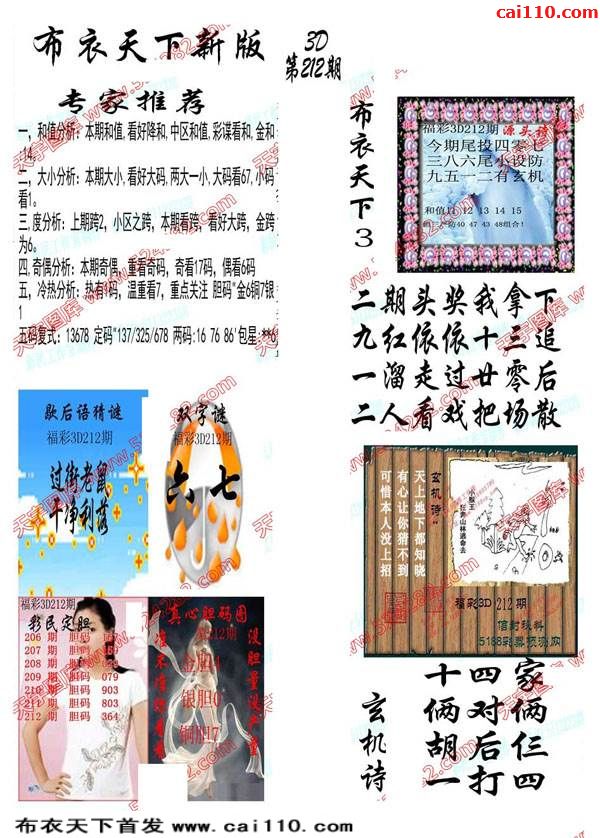 cai110.com
布衣天下新版
3D
第212期
专家推荐
一，和值分析：本期和值，看好降和，中区和值，彩谜看和，金和
14，
二，大小分析：本期大小，看好大码，两大一小，大码看67，小码
看1。
三，度分析：上期跨2，小区之跨，本期看跨，看好大跨，金跨
为6。
四，奇偶分析：本期奇偶，重看奇码，奇看17码，偶看6码
五，冷热分析：热看码，温重看7，重点关注 胆码"金6铜7银
1
五码复式：13678 定码"137/325/678 两码:16 76 86'包星:**6
布衣天下3
福彩3D212期 源头诗
今期尾投四零七
三八六尾小设防
九五一二有玄机
和值11 12 13 14 15
40 47 43 48组合!
二期头奖我拿下
九红依依十三追
一溜走过廿零后
二人看戏把场散
歇后语猜谜
福彩3D212期
过街老鼠
干净利落
双字谜
福彩3D212期
六七
玄机诗
天上地下都知晓
有心让你猜不到
可惜本人没上招
小猴王
狂奔山林逃命去
福彩3D 212期
信封秘料
5188彩票预测网
福彩3D212期
彩民定胆
206 期 胆码
207 期 胆码
208 期 胆码
209 期 胆码 079
210 期 胆码 903
211 期 胆码 803
212 期 胆码 364
真心胆码图
212期
金胆4
银胆0
铜胆7
玄机诗
十四家
俩对俩
胡后仨
一打四
布衣天下首发 www.cai110.com